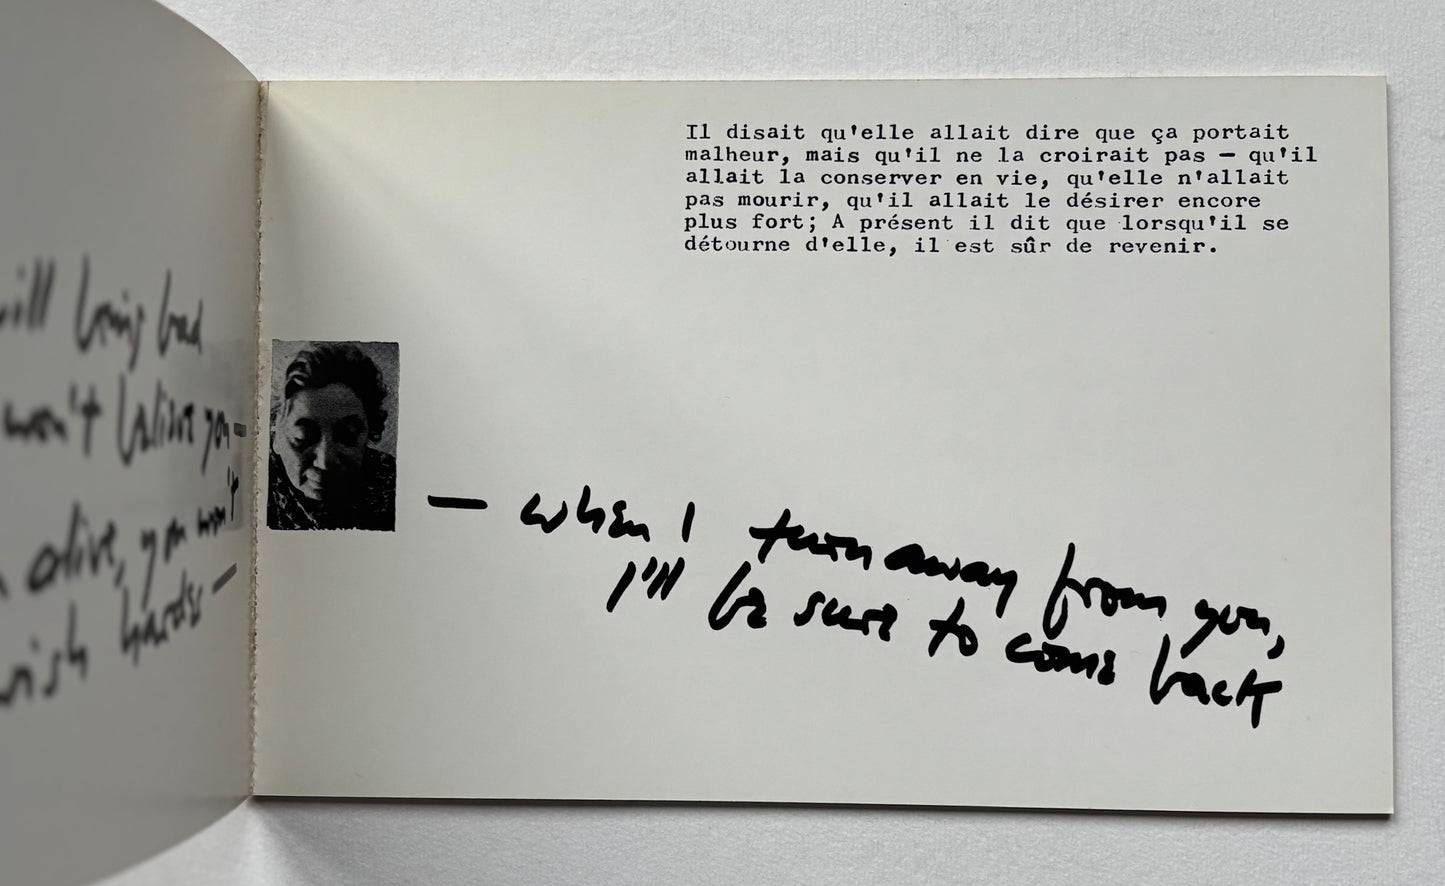 will bring bad
won't believe you —
alive, you won't
wish harder —
Il disait qu'elle allait dire que ça portait
malheur, mais qu'il ne la croirait pas — qu'il
allait la conserver en vie, qu'elle n'allait
pas mourir, qu'il allait le désirer encore
plus fort; A présent il dit que lorsqu'il se
détourne d'elle, il est sûr de revenir.
— when I turn away from you,
I'll be sure to come back